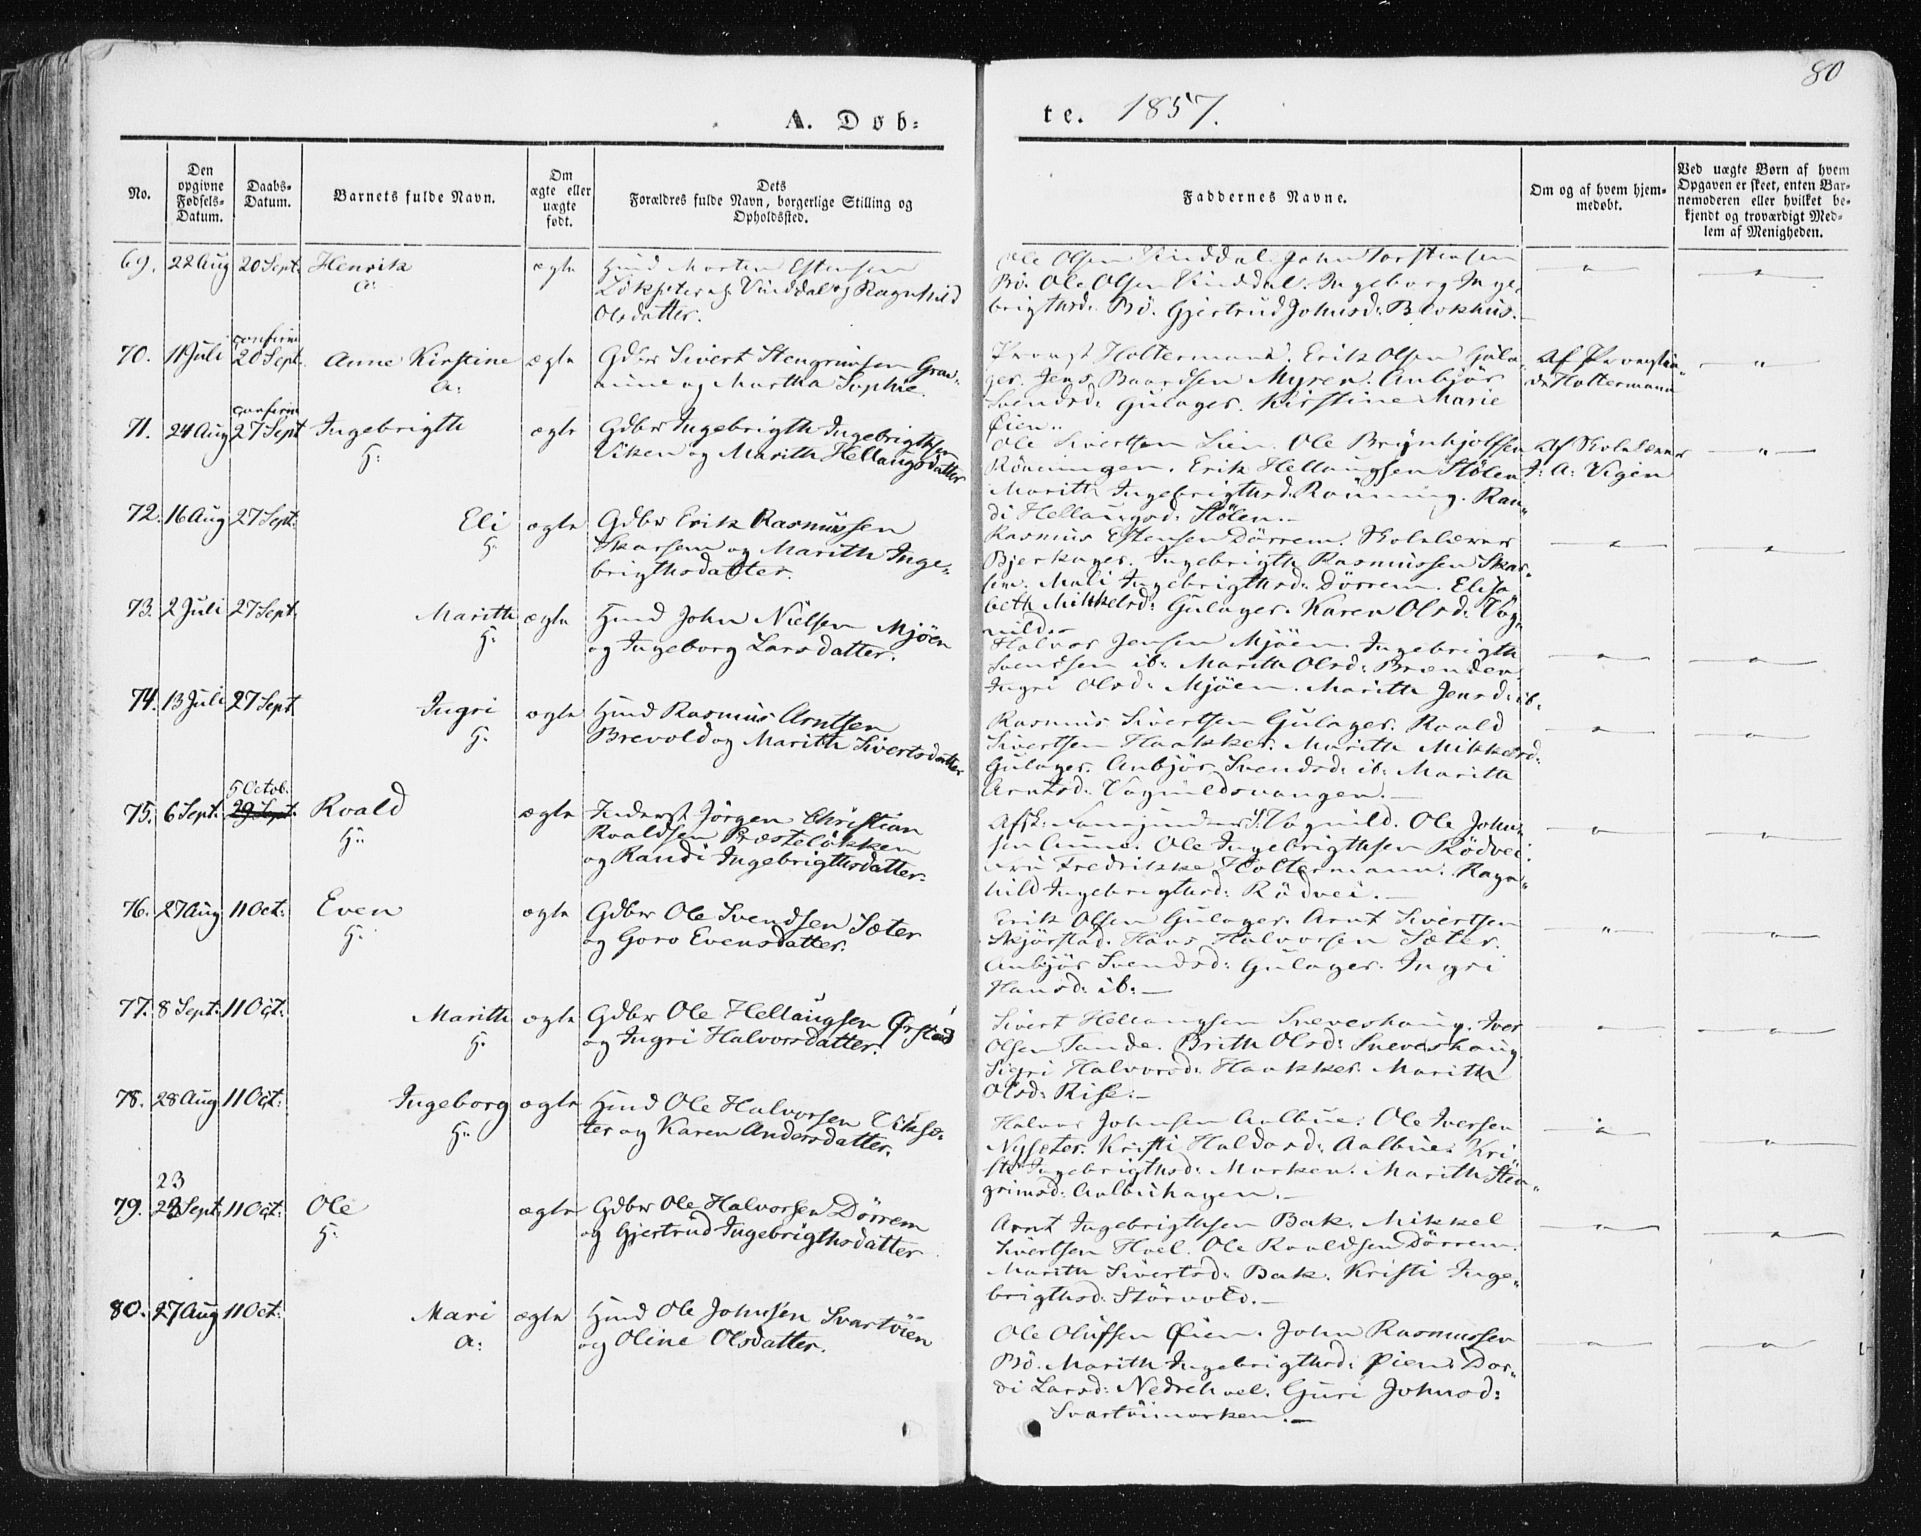 80
A. Døb=
te. 1857.
No.
Den opgivne Fødsels-Datum.
Daabs-Datum.
Barnets fulde Navn.
Om ægte eller uægte født.
Dets Forældres fulde Navn, borgerlige Stilling og Opholdssted.
Faddernes Navne.
Om og af hvem hjemmedøbt.
Ved uægte Børn af hvem Opgaven er skeet, enten Barnemoderen eller hvilket bekjendt og troværdigt Medlem af Menigheden.
69. 22 Aug 20 Sept. Henrik ægte Huusmd Morten Estensen
a:
og Ragnhild
Olsdatter.
Ole Olsen Vinddal. John Torstensen
Bö. Ole Olsen Vinddal. Ingeborg Inge-
brigthsd: Bö. Gjertrud Johnsd: Blokhus.
confirm
70. 11 Juli 20 Sept. Anne Kirstine ægte Gdbr Sivert Stengrimsen Grav-
a:
og Martha Sophie.
Provst Holtermann. Erik Olsen Gula-
ger. Jens Baardsen Myren. Anbjör
Svendsd: Gulager. Kirstine Marie
Öien.
Af Provstin-
de Holtermann
confirm
71. 24 Aug 27 Sept Ingebrigth ægte Gdbr Ingebrigth Ingebrigthsen
H:
Viken og Marith Hellaugsdatter
Ole Sivertsen Lien. Ole Brynhjolfsen
Rönningen. Erik Hellaugsen Stölen.
Marith Ingebrigthsd: Rönning. Ran-
di Hellaugsd: Stölen.
Af Skolelærer
I: A: Vigen
72. 16 Aug 27 Sept. Eli ægte Gdbr Erik Rasmussen
H:
Skarsem og Marith Inge-
brigthsdatter.
Rasmus Estensen Dörrem. Skolelærer
Bjerkager. Ingebrigth Rasmussen Skar-
sem. Mali Ingebrigthsd: Dörrem. Elisa-
beth Mikkelsd: Gulager. Karen Olsd: Vog-
nild.
73. 2 Juli 27 Sept. Marith ægte Huusmd John Nielsen Mjöen
H:
og Ingeborg Larsdatter.
Halvor Jensen Mjöen. Ingebrigth
Svendsen ib: Marith Olsd: Brenden
Ingri Olsd: Mjöen. Marith Jensd: ib.
74. 13 Juli 27 Sept Ingri ægte Huusmd Rasmus Arntsen
H.
Brevold og Marith Sivertsdatter
Rasmus Sivertsen Gulager. Roald
Sivertsen Haakker. Marith Mikkelsd:
Gulager. Anbjör Svendsd: ib: Marith
Arntsd: Vognildsvangen.
5 Octob.
75. 6 Sept. 29 Sept. Roald ægte Inderst Jörgen Christian
H:
Roaldsen Præstelökken
og Randi Ingebrigthsdatter.
Vognild. Ole John-
sen Aune. Ole Ingebrigthsen Rödvei.
Fredrikke Holtermann. Ragn-
hild Ingebrigthsd: Rödvei.
76. 27 Aug 11 Oct: Even ægte Gdbr Ole Svendsen Sæter
H:
og Goro Evensdatter.
Erik Olsen Gulager. Arnt Sivertsen
Skjörstad. Hans Halvorsen Sæter.
Anbjör Svendsd: Gulager. Ingri
Hansd: ib:
77. 8 Sept. 11 Oct: Marith ægte Gdbr Ole Hellaugsen Örstad
H:
og Ingri Halvorsdatter.
Sivert Hellaugsen Sneveshaug. Iver
Olsen Sande. Brith Olsd: Sneveshaug.
Sigri Halvorsd: Haakker. Marith
Olsd: Rise.
78. 28 Aug 11 Oct: Ingeborg ægte Huusmd Ole Halvorsen Viksæ-
H:
ter og Karen Andersdatter.
Halvor Johnsen Aalbue. Ole Iversen
Nysæter. Kristi Haldosd: Aalbue. Kri-
sti Ingebrigthsd: Marken. Marith Sten-
grimsd: Aalbuhagen.
23
79. 23 Sept. 11 Oct: Ole ægte Gdbr Ole Halvorsen Dörrem
H:
og Gjertrud Ingebrigthsdatter
Arnt Ingebrigthsen Bak. Mikkel
Sivertsen Hoel. Ole Roaldsen Dörrem.
Marith Sivertsd: Bak. Kristi Inge-
brigthsd: Störvold.
80. 27 Aug 11 Oct: Mari ægte Huusmd Ole Johnsen Svartöien
a:
og Oline Olsdatter.
Ole Olufsen Öien. John Rasmussen
Bö. Marith Ingebrigthsd: Öien. Dor-
di Larsd: Nedrehoel. Guri Johnsd:
Svartöimorken.